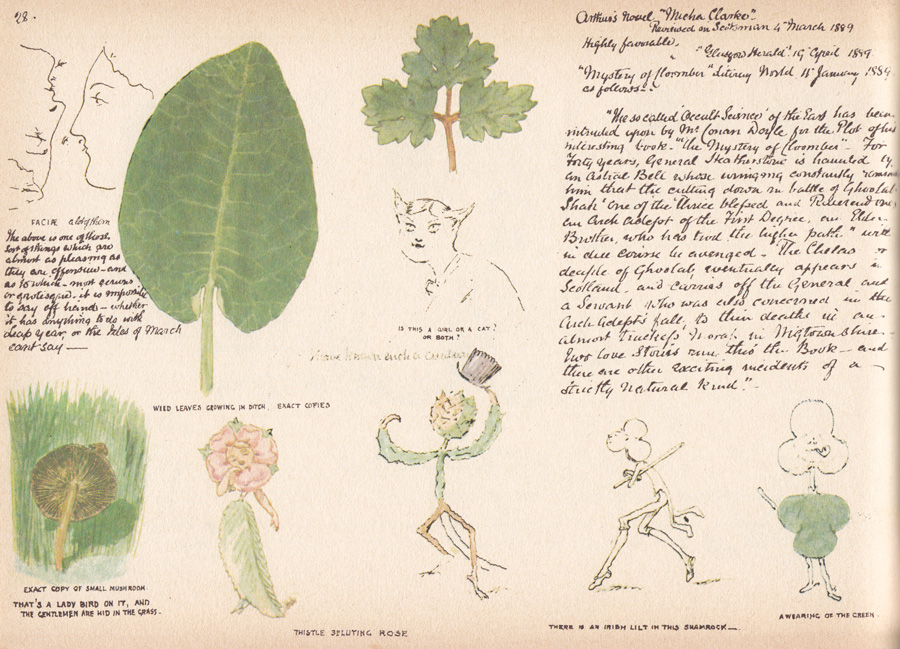 28.
FACIÆ a lot of them
The above is one of those
sort of things which are
almost as pleasing as
they are offensive - and
as to which - most serious
or grotesque, it is impossible
to say off hand - whether
it has anything to do with
leap year, or the Ides of March
cant say —
WEED LEAVES GROWING IN DITCH, EXACT COPIES
IS THIS A GIRL OR A CAT?
OR BOTH?
have known such a
EXACT COPY OF SMALL MUSHROOM
THAT'S A LADY BIRD ON IT, AND
THE GENTLEMEN ARE HID IN THE GRASS.
THISTLE SALUTING ROSE
THERE IS AN IRISH LILT IN THIS SHAMROCK —
A WEARING OF THE GREEN.
Arthur's Novel, "Micha Clarke".
Reviewed in Scotsman 4 March 1889
Highly favorable.
" "Glasgow Herald". 19 April 1889
"Mystery of Cloomber" Literary World 11 January 1889
as follows:-
"The so called 'Occult Science' of the East has been
intruded upon by Mr Conan Doyle for the Plot of his
interesting book - "The Mystery of Cloomber" - For
Forty years, General Heatherstone is haunted by
an Astral Bell whose ringing constantly reminds
him that the cutting down in battle of Ghoolab
Shah "one of the thrice blessed and Reverend one
an Arch adept of the First Degree, an Elder
Brother, who has trod the higher path" will
in due course be avenged - The Chelas or
deciple of Ghoolab, eventually appears in
Scotland - and carries off the General and
a Servant who was also concerned in the
Arch Adepts fall, to their deaths in an
almost trackless Morass in Wigtownshire -
Two love Stories run this the Book - and
there are other exciting incidents of a —
strictly natural kind" -